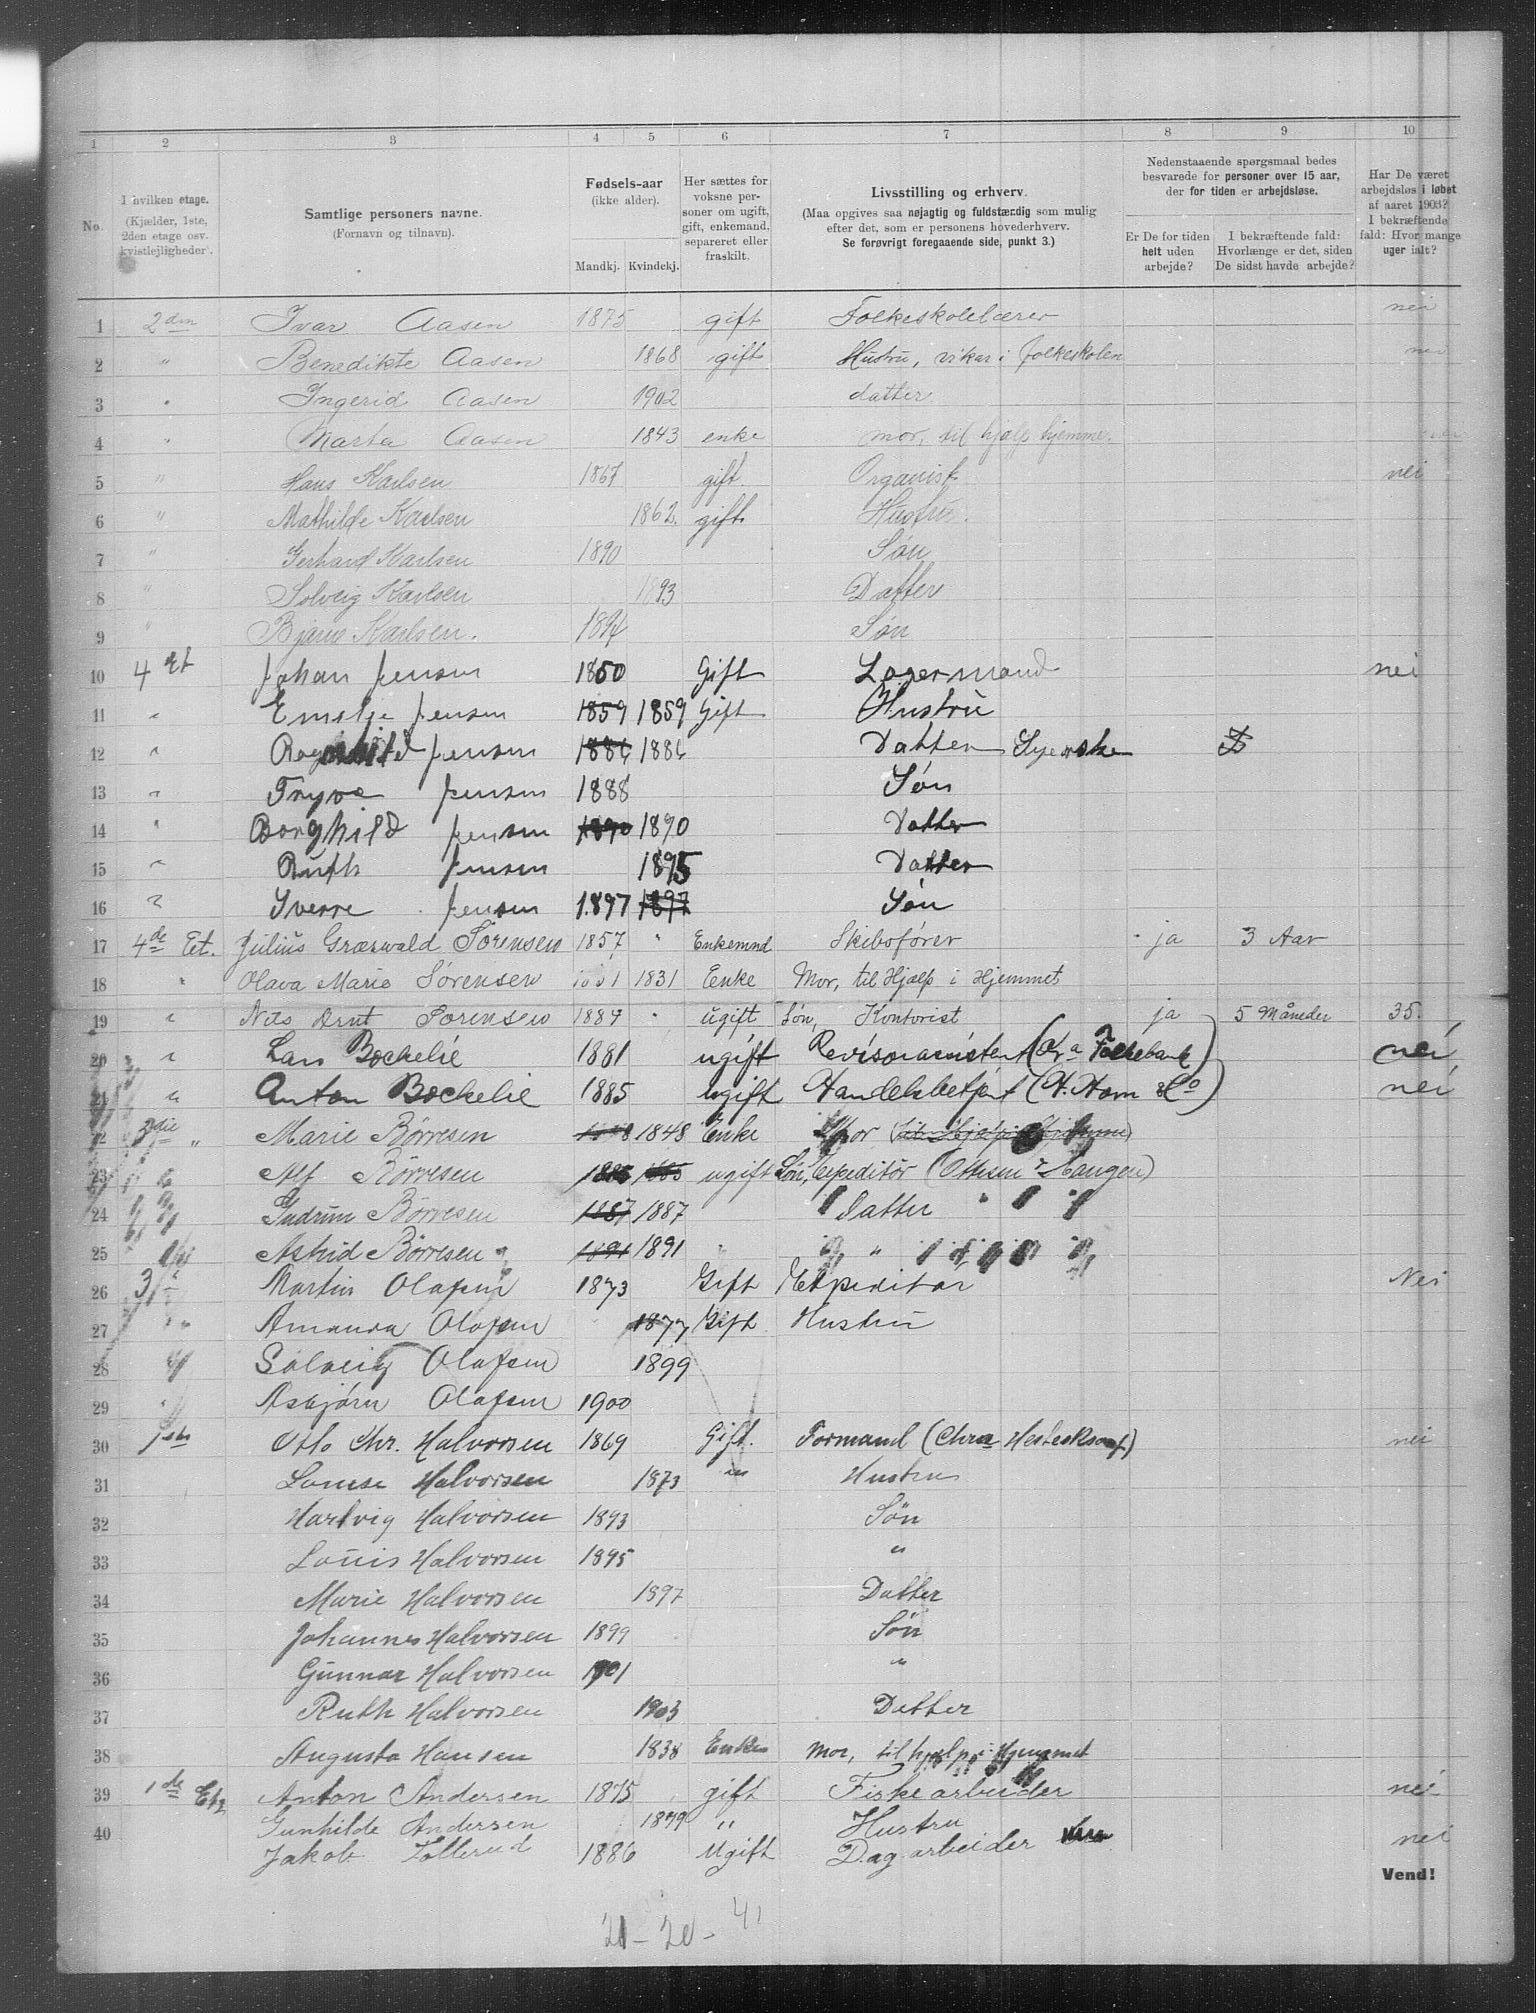 1 2 3 4 5 6 7 8 9 10
No.
I hvilken etage. (Kjælder, 1ste, 2den etage osv. kvistlejligheder).
Samtlige personers navne. (Fornavn og tilnavn).
Fødsels-aar (ikke alder). Mandkj. Kvindekj.
Her sættes for voksne personer om ugift, gift, enkemand, separeret eller fraskilt.
Livsstilling og erhverv. (Maa opgives saa nøjagtig og fuldstændig som mulig efter det, som er personens hovederhverv. Se forøvrigt foregaaende side, punkt 3.)
Nedenstaaende spørgsmaal bedes besvarede for personer over 15 aar, der for tiden er arbejdsløse.
Er De for tiden helt uden arbejde?
I bekræftende fald: Hvorlænge er det, siden De sidst havde arbejde?
Har De været arbejdsløs i løbet af aaret 1903? I bekræftende fald: Hvor mange uger ialt?
1 2den Ivar Aasen 1875 gift Folkeskolelærer nei
2 " Benedikte Aasen 1868 gift Hustru, vikar i folkeskolen nei
3 " Ingerid Aasen 1902 datter
4 " Marta Aasen 1843 enke mor, til hjælp hjemme. nei
5 " Hans Karlsen 1867 gift. Organist nei
6 " Mathilde Karlsen 1862. gift Hustru.
7 " Gerhard Karlsen 1890 Søn
8 " Solveig Karlsen 1893 Datter
9 " Bjarne Karlsen. 1894 Søn
10 4 et Johan Jensen 1850 Gift Lagermand nei
11 " Emelje Jensen 1859 1859 Gift Hustru
12 " Ragnhild Jensen 1886 1886 Datter Syerske
13 " Trygve Jensen 1888 Søn
14 " Borghild Jensen 1890 1890 Datter
15 " Ruth Jensen 1895 Datter
16 " Sverre Jensen 1897 1897 Søn
17 4de Et. Julius Græswald Sørensen 1857 " Enkemnd Skibsfører ja 3 Aar
18 " Olava Marie Sørensen 1831 Enke Mor, til Hjælp i Hjemmet
19 " Nils Arnt Sørensen 1884 " ugift Søn, Kontorist ja 5 Måneder 35.
20 " Lars Bockelie 1881 ugift Revisorassistent (Kra Folkebank) nei
21 " Anton Bockelie 1885 ugift Handelsbetjent (H. Horn & Co) nei
22 3die " Marie Børresen 1848 1848 Enke Mor (til Hjælp i Hjemmet)
23 Alf Børresen 1885 1885 ugift Søn, Expeditør (Ottesen & Langen)
24 Gudrun Børresen 1887 1887 Datter
25 Astrid Børresen 1891 1891 "
26 3 Martin Olafsen 1873 Gift Expeditør Nei
27 " Amanda Olafsen 1877 Gift Hustru
28 Solveig Olafsen 1899
29 Asbjørn Olafsen 1900
30 1ste Otto Chr. Halvorsen 1869 Gift. Formand (Chra Hesteskosøf) nei
31 Louise Halvorsen 1873 " Hustru
32 Hartvig Halvorsen 1893 Søn
33 Louis Halvorsen 1895 "
34 Marie Halvorsen 1897 Datter
35 Johannes Halvorsen 1899 Søn
36 Gunnar Halvorsen 1901 "
37 Ruth Halvorsen 1903 Datter
38 Augusta Hansen 1838 Enke Mor, til hjælp i Hjemmet
39 1de Etg Anton Andersen 1875 gift Fiskearbeider nei
40 Gunhilde Andersen 1879 " Hustru
Jakob Tollerud 1886 Ugift Dagarbeider nei
Vend!
21 - 20 - 41